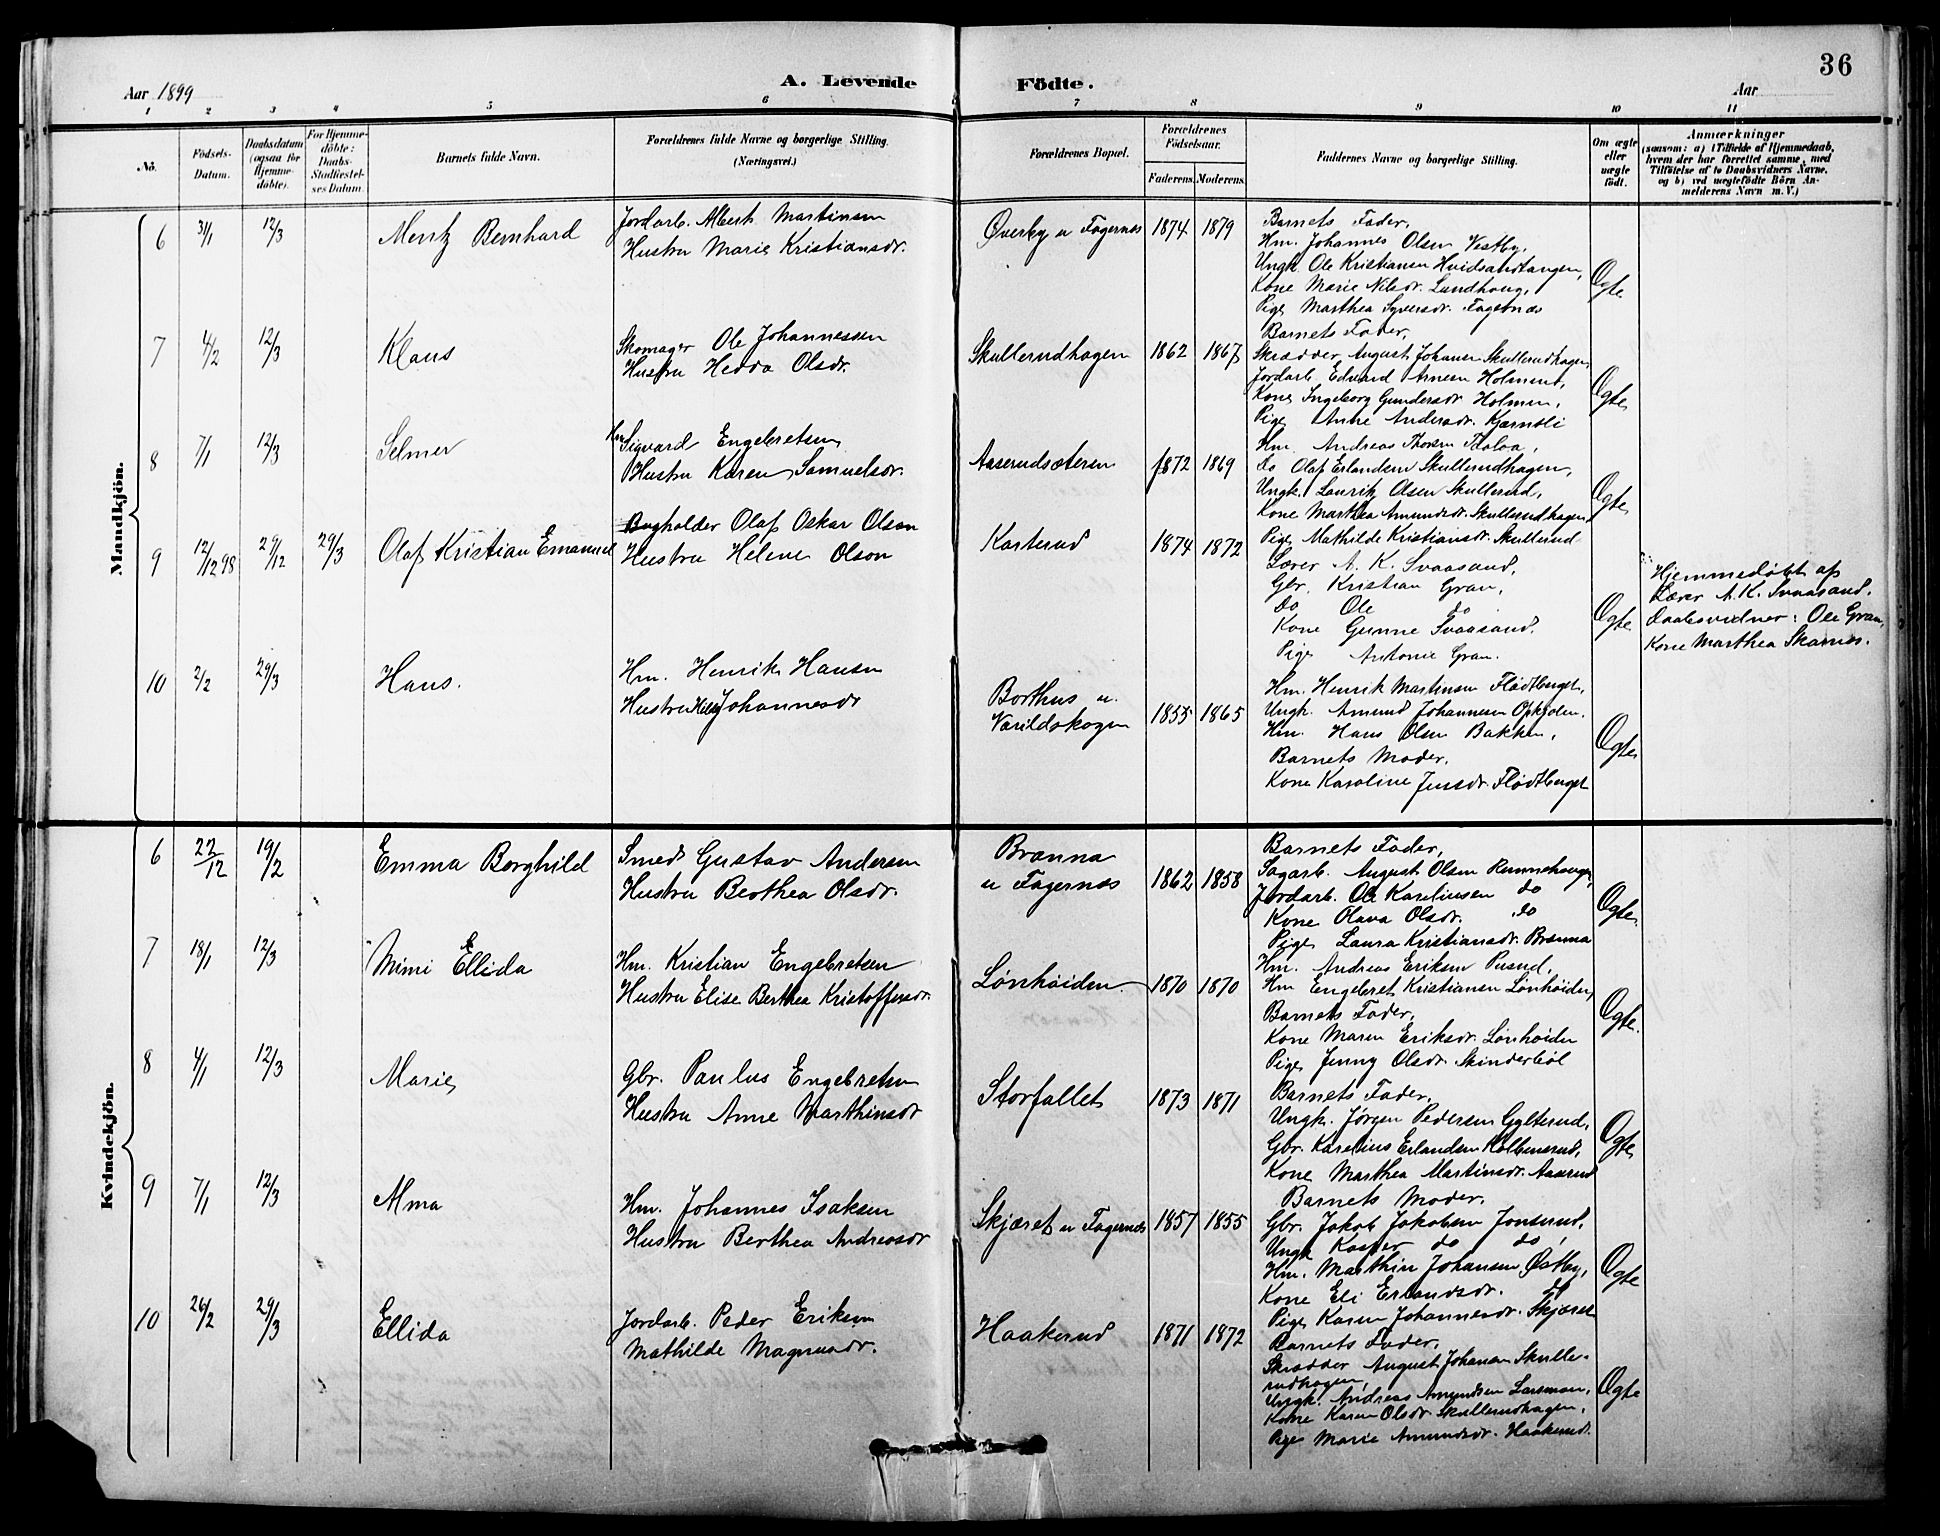 36
Aar 1899
A. Levende Födte.
Aar
1 2 3 4 5 6 7 8 9 10 11
No.
Födsels-Datum.
Daabsdatum (ogsaa for Hjemmedöbte).
For Hjemmedöbte: Daabs-Stadfæstelses Datum.
Barnets fulde Navn.
Forældrenes fulde Navne og borgerlige Stilling.
(Næringsvei.)
Forældrenes Bopæl.
Forældrenes Födselsaar.
Faderens. Moderens.
Faddernes Navne og borgerlige Stilling.
Om ægte eller uægte födt.
Anmærkninger
(saasom: a) i Tilfælde af Hjemmedaab, hvem der har forrettet samme, med Tilföielse af to Daabsvidners Navne, og b) ved uægtefödte Börn Anmelderens Navn m. V.)
Mandkjön.
6 31/1 12/3 Mentz Bernhard
Jordarb. Albert Martinsen
Hustru Marie Kristiansdr.
Overby u Fagernes 1874 1879
Barnets Fader,
Hm. Johannes Olsen Vestby,
Ungk. Ole Kristiansen Hvidsandtangen,
Kone Marie Nilsdr. Lundhoug,
Pige Marthea Syversdr. Fagernæs
Ægte
7 4/2 12/3 Klaus
Skomager Ole Johannessen
Hustru Hedda Olsdr.
Skullerudhagen 1862 1867
Barnets Fader,
Skrædder August Johansen Skullerudhagen,
Jordarb. Edvard Arnesen Holmen,
Kone Ingeborg Gundersdr Holmen,
Pige Anne Andersdr. Kærnsli
Ægte
8 7/1 12/3 Selmer
Hm Sigvard Engebretsen
Hustru Karen Samuelsdr.
Aaserudsæteren 1872 1869
Hm. Andreas Thoresen
Do Olaf Erlandsen Skullerudhagen,
Ungk. Lauritz Olsen Skullerud,
Kone Marthea Amundsdr. Skullerudhagen,
Pige Mathilde Kristiansdr. Skullerud
Ægte
9 12/12 98 29/12 29/3 Olaf Kristian Emanuel
Bogholder Olaf Oskar Olson
Hustru Helene Olson
Karterud 1874 1872
Lærer A. K. Svaasand,
Gbr. Kristian Gran,
Do Ole do
Kone Gunne Svaasand.
Pige Antonie Gran.
Ægte
Hjemmedøbt af
Lærer A. K. Svaasand.
Daabsvidner: Ole Gran,
Kone Marthea Skarnes.
10 2/2 29/3 Hans.
Hm. Henrik Hansen
Hustru Helle Johannesdr
Borthus u.
Varildskogen 1855 1865
Hm. Henrik Martinsen Flødtberget,
Ungk. Amund Johannesen Opkjølen.
Hm. Hans Olsen Bakken,
Barnets Moder,
Kone Karoline Jensdr. Flødtberget
Ægte
Kvindekjön.
6 22/12 19/2 Emma Borghild
Smed Gustav Andersen
Hustru Berthea Olsdr.
Brænna
u Fagernæs 1862 1858
Barnets Fader,
Sagarb. August Olsen
Jordarb. Ole Karelinsen do
Kone Olava Olsdr. do
Pige Laura Kristiansdr. Brænna
Ægte
7 18/1 12/3 Mimi Ellida
Hm. Kristian Engebretsen
Hustru Elise Berthea Kristoffersdr.
Lønhøiden 1870 1870
Hm. Andreas Eriksen
Hm Engebret Kristiansen Lønhøiden,
Barnets Fader,
Kone Maren Eriksdr. Lønhøiden
Pige Jenny Olsdr. Skinderbøl
Ægte.
8 4/1 12/3 Marie
Gbr. Paulus Engebretsen
Hustru Anne Marthinsdr
Storfallet 1873 1871
Barnets Fader,
Ungk. Jørgen Pedersen Gylterud,
Gbr. Karelius Erlandsen Kolbenerud,
Kone Marthea Martinsdr. Aaserud
Ægte
9 7/1 12/3 Alma
Hm. Johannes Isaksen
Hustru Berthea Andreasdr
Skjæret u Fagernes 1857 1855
Barnets Moder,
Gbr. Jakob Jakobsen Jonsrud,
Ungk Kasper do do,
Hm. Marthin Johansen Østby,
Kone Eli Erlandsdr. do
Pige Karen Johannesdr. Skjæret
Ægte
10 26/2 29/3 Ellida
Jordarb. Peder Eriksen
Mathilde Magnusdr.
Haakerud 1871 1872
Barnets Fader,
Skrædder August Johansen Skulle-
rudhagen,
Ungk. Andreas Amundsen Larsmon,
Kone Karen Olsdr. Skullerudhagen,
Pige Marie Amundsdr. Haakerud.
Ægte